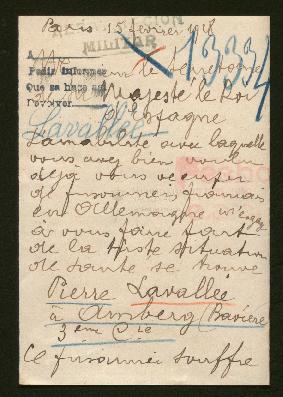 Paris 15 février 1918
MILITAR
A
Pedir informes
Que se haga así
13334
Majesté le Roi
d'Espagne
Lavallée
L'amabilité avec laquelle
vous avez bien voulu
déjà vous occuper
de prisonniers français
en Allemagne m'engage
à vous faire part
de la triste situation
de santé se trouve
Pierre Lavallée
à Amberg (Bavière
3ème Cie
Ce prisonnier souffre